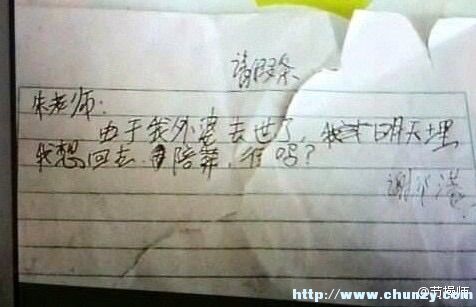 请假条
朱老师：
由于我外婆去世了，我 明天埋
我想回去 陪葬，行吗？
谢
http://www.chunzy.com
@劳操师